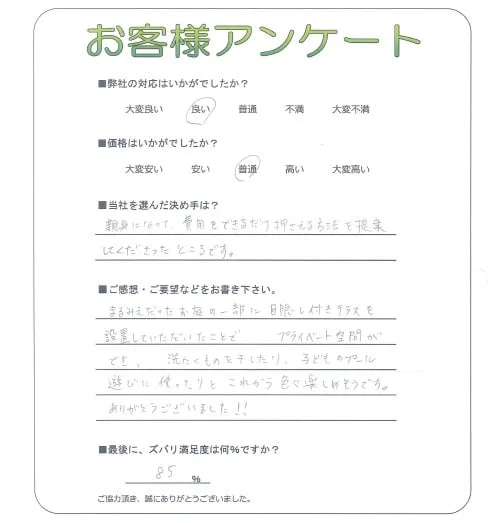 お客様アンケート
■弊社の対応はいかがでしたか？
大変良い 良い 普通 不満 大変不満
■価格はいかがでしたか？
大変安い 安い 普通 高い 大変高い
■当社を選んだ決め手は？
親身になって、費用をできるだけ押さえる方法を提案
してくださったところです。
■ご感想・ご要望などをお書き下さい。
まるみえだったお庭の一部に目隠し付きテラスを
設置していただいたことで プライベート空間が
でき、洗たくものを干したり、子どものプール
遊びに使ったりとこれから色々楽しめそうです。
ありがとうございました!!
■最後に、ズバリ満足度は何%ですか？
85 %
ご協力頂き、誠にありがとうございました。